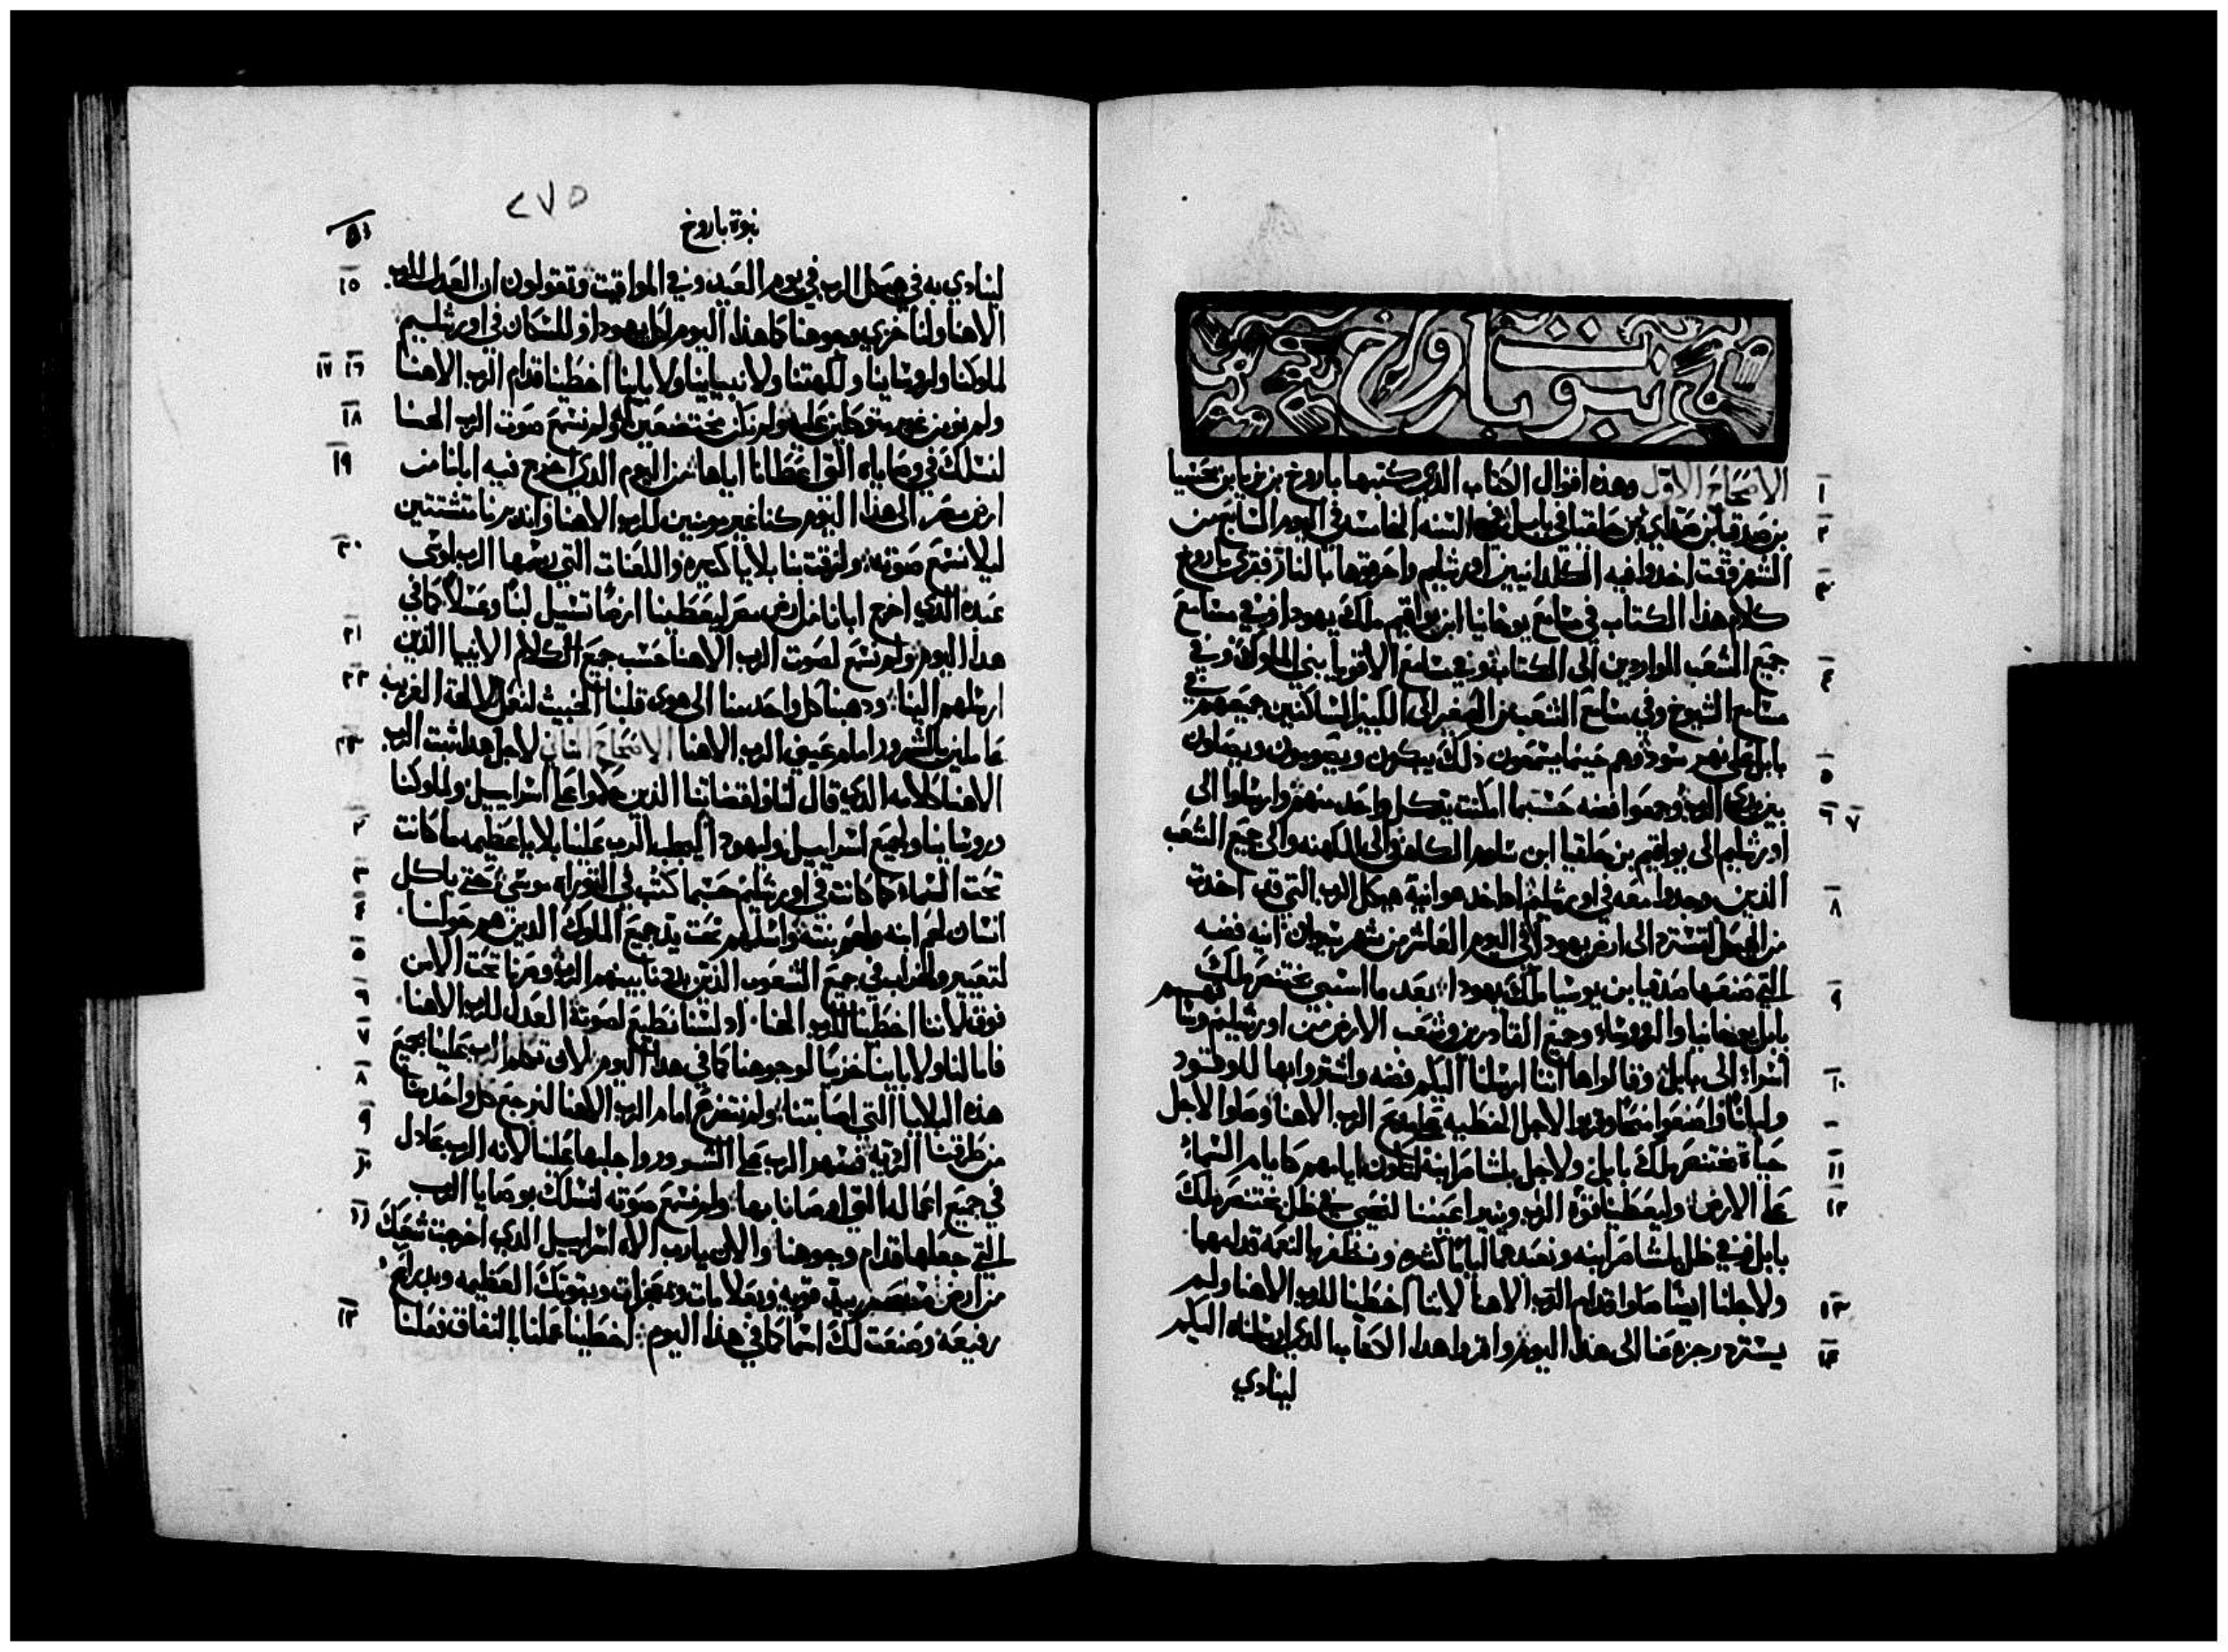 نبوة باروخ
١
الاصحاح الاول وهذه اقوال الكتاب الذي كتبها باروخ بن نريا بن محسيا
٢
بن صدقيا بن صداي بن حلقيا في بابل في السنه الخامسه في اليوم السابع من
الشهر وقت اخدوا فيه الكلدانيين اورشليم واحرقوها بالنار فقرى باروخ
٣
كلام هذا الكتاب في مسامع يوخانيا ابن يواقيم ملك يهودا وفي مسامع
جميع الشعب الواردين الى الكتاب وفي مسامع الاقويا بني الملوك وفي
٤
مسامع الشيوخ وفي مسامع الشعب من الصغير الى الكبير الساكنين جميعهم في
بابل على نهر سود وهم حينما يسمعون ذلك يبكون ويصومون ويصلون
٥
بين يدي الرب وجمعوا فضه حسبما امكنت يد كل واحد منهم وارسلوا الى
٦ ٧
اورشليم الى يواقيم بن حلقيا ابن سلوم الكاهن والى الكهنه والى جميع الشعب
الذين وجدوا معه في اورشليم اخد اوانية هيكل الرب التي قد اخدت
٨
من الهيكل لتسترد الى ارض يهودا في اليوم العاشر من شهر سيوان انيه فضه
التي صنعها صدقيا بن يوسيا ملك يهودا بعد ما اسبى بختنصر ملك
٩
بابل يوخانيا والروساء وجميع القادرين وشعب الارض من اورشليم وساقهم
اسراء الى بابل وقالوا ها اننا ارسلنا اليكم فضه واشتروا بها للوقود
١٠
ولبانا واصنعوا منحا وقربوا لاجل الخطيه على مدبح الرب الاهنا وصلوا لاجل
حياة بختنصر ملك بابل ولاجل بلشاصر ابنه لتكون ايامهم كايام السماء
١١
على الارض وليعطينا قوة الرب وينير اعيننا لنحيى في ظل بختنصر ملك
١٢
بابل وفي ظل بلشاصر ابنه ونعبدهما اياما كثيره ونظفر بالنعمه قدامهما
ولاجلنا ايضا صلوا قدام الرب الاهنا لاننا اخطينا للرب الاهنا ولم
١٣
يسترد رجزه عنا الى هذا اليوم واقروا هدا الكتاب الدي ارسلناه اليكم
١٤
لينادي
٢٧٥
نبوة باروخ
لينادي به في هيكل الرب في يوم العيد وفي المواقيت وتقولون ان العدل للرب
١٥
الاهنا ولنا خزي وجوهنا كما هذا اليوم لكل يهودا وللسكان في اورشليم
لملوكنا ولروساينا ولكهنتنا ولانبياينا ولاباينا اخطينا قدام الرب الاهنا
١٦ ١٧
ولم نومن غير متوكلين عليه ولم نكن مختضعين له ولم نسمع صوت الرب الهنا
١٨
لنسلك في وصاياه التي اعطانا اياها من اليوم الدي اخرج فيه ابانا من
١٩
ارض مصر الى هذا اليوم كنا غير مومنين للرب الاهنا واندبرنا متشتتين
ليلا نسمع صوته ولزقت بنا بلايا كثيره واللعنات التي رسمها الرب لموسى
٢٠
عبده الذي اخرج ابانا من ارض مصر ليعطينا ارضا تسيل لبنا وعسلا كما في
هدا اليوم ولم نسمع لصوت الرب الاهنا حسب جميع الكلام الانبيا الذين
٢١
ارسلهم الينا ودهبنا كل واحد منا الى هوى قلبنا الخبيث لنعمل لالهة الغريبه
٢٢
عاملين بالشرور امام عيني الرب الاهنا الاصحاح الثاني لاجل هدا ثبت الرب
الاهنا كلامه الدي قال لنا ولقضاتنا الذين حكموا على اسراييل ولملوكنا
وروساينا ولجميع اسراييل وليهودا ليجلب الرب علينا بلايا عظيمه ما كانت
٢
تحت السماء كما كانت في اورشليم حسبما كتب في التوراه موسى حتى ياكل
٣
انسان لحم ابنه ولحم بنته واسلمهم تحت يد جميع الملوك الدين هم حولنا
٤
لتعيير ولخراب في جميع الشعوب الذين بددنا بينهم الرب وصرنا تحت الامن
٥
فوق لاننا اخطينا للرب الهنا اد لسنا نطيع لصوته العدل للرب الاهنا
٦
فاما لنا ولاباينا خزيا لوجوهنا كما في هدا اليوم لان تكلم الرب علينا بجميع
٧
هذه البلايا التي اصابتنا ولم نتضرع امام الرب الاهنا لنرجع كل واحد منا
٨
من طرقنا الرديه فسهر الرب على الشرور واجلبها علينا لانه الرب عادل
٩
في جميع اعماله التي اوصانا بها ولم نسمع صوته لنسلك بوصايا الرب
١٠
التي جعلها قدام وجوهنا والان يارب الاه اسراييل الدي اخرجت شعبك
١١
من ارض مصر بيد قويه وبعلامات وبمعجزات وبقوتك العظيمه وبدراع
رفيعه وصنعت لك اسما كما في هذا اليوم اخطينا عملنا بالنفاق فعلنا
١٢